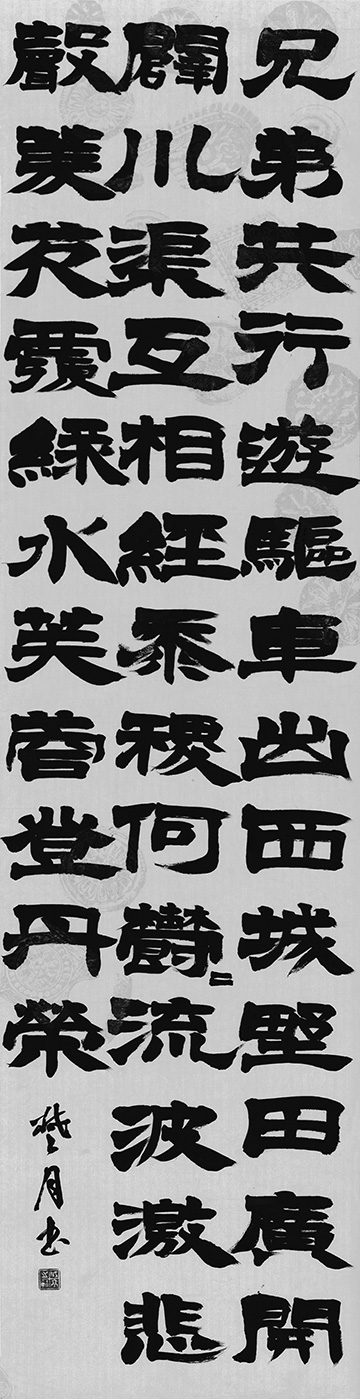 兄弟共行遊驅車出西城野田廣開
闢川渠互相經黍稷何鬱〻流波激悲
聲菱芡覆綠水芙蓉登丹榮
月书